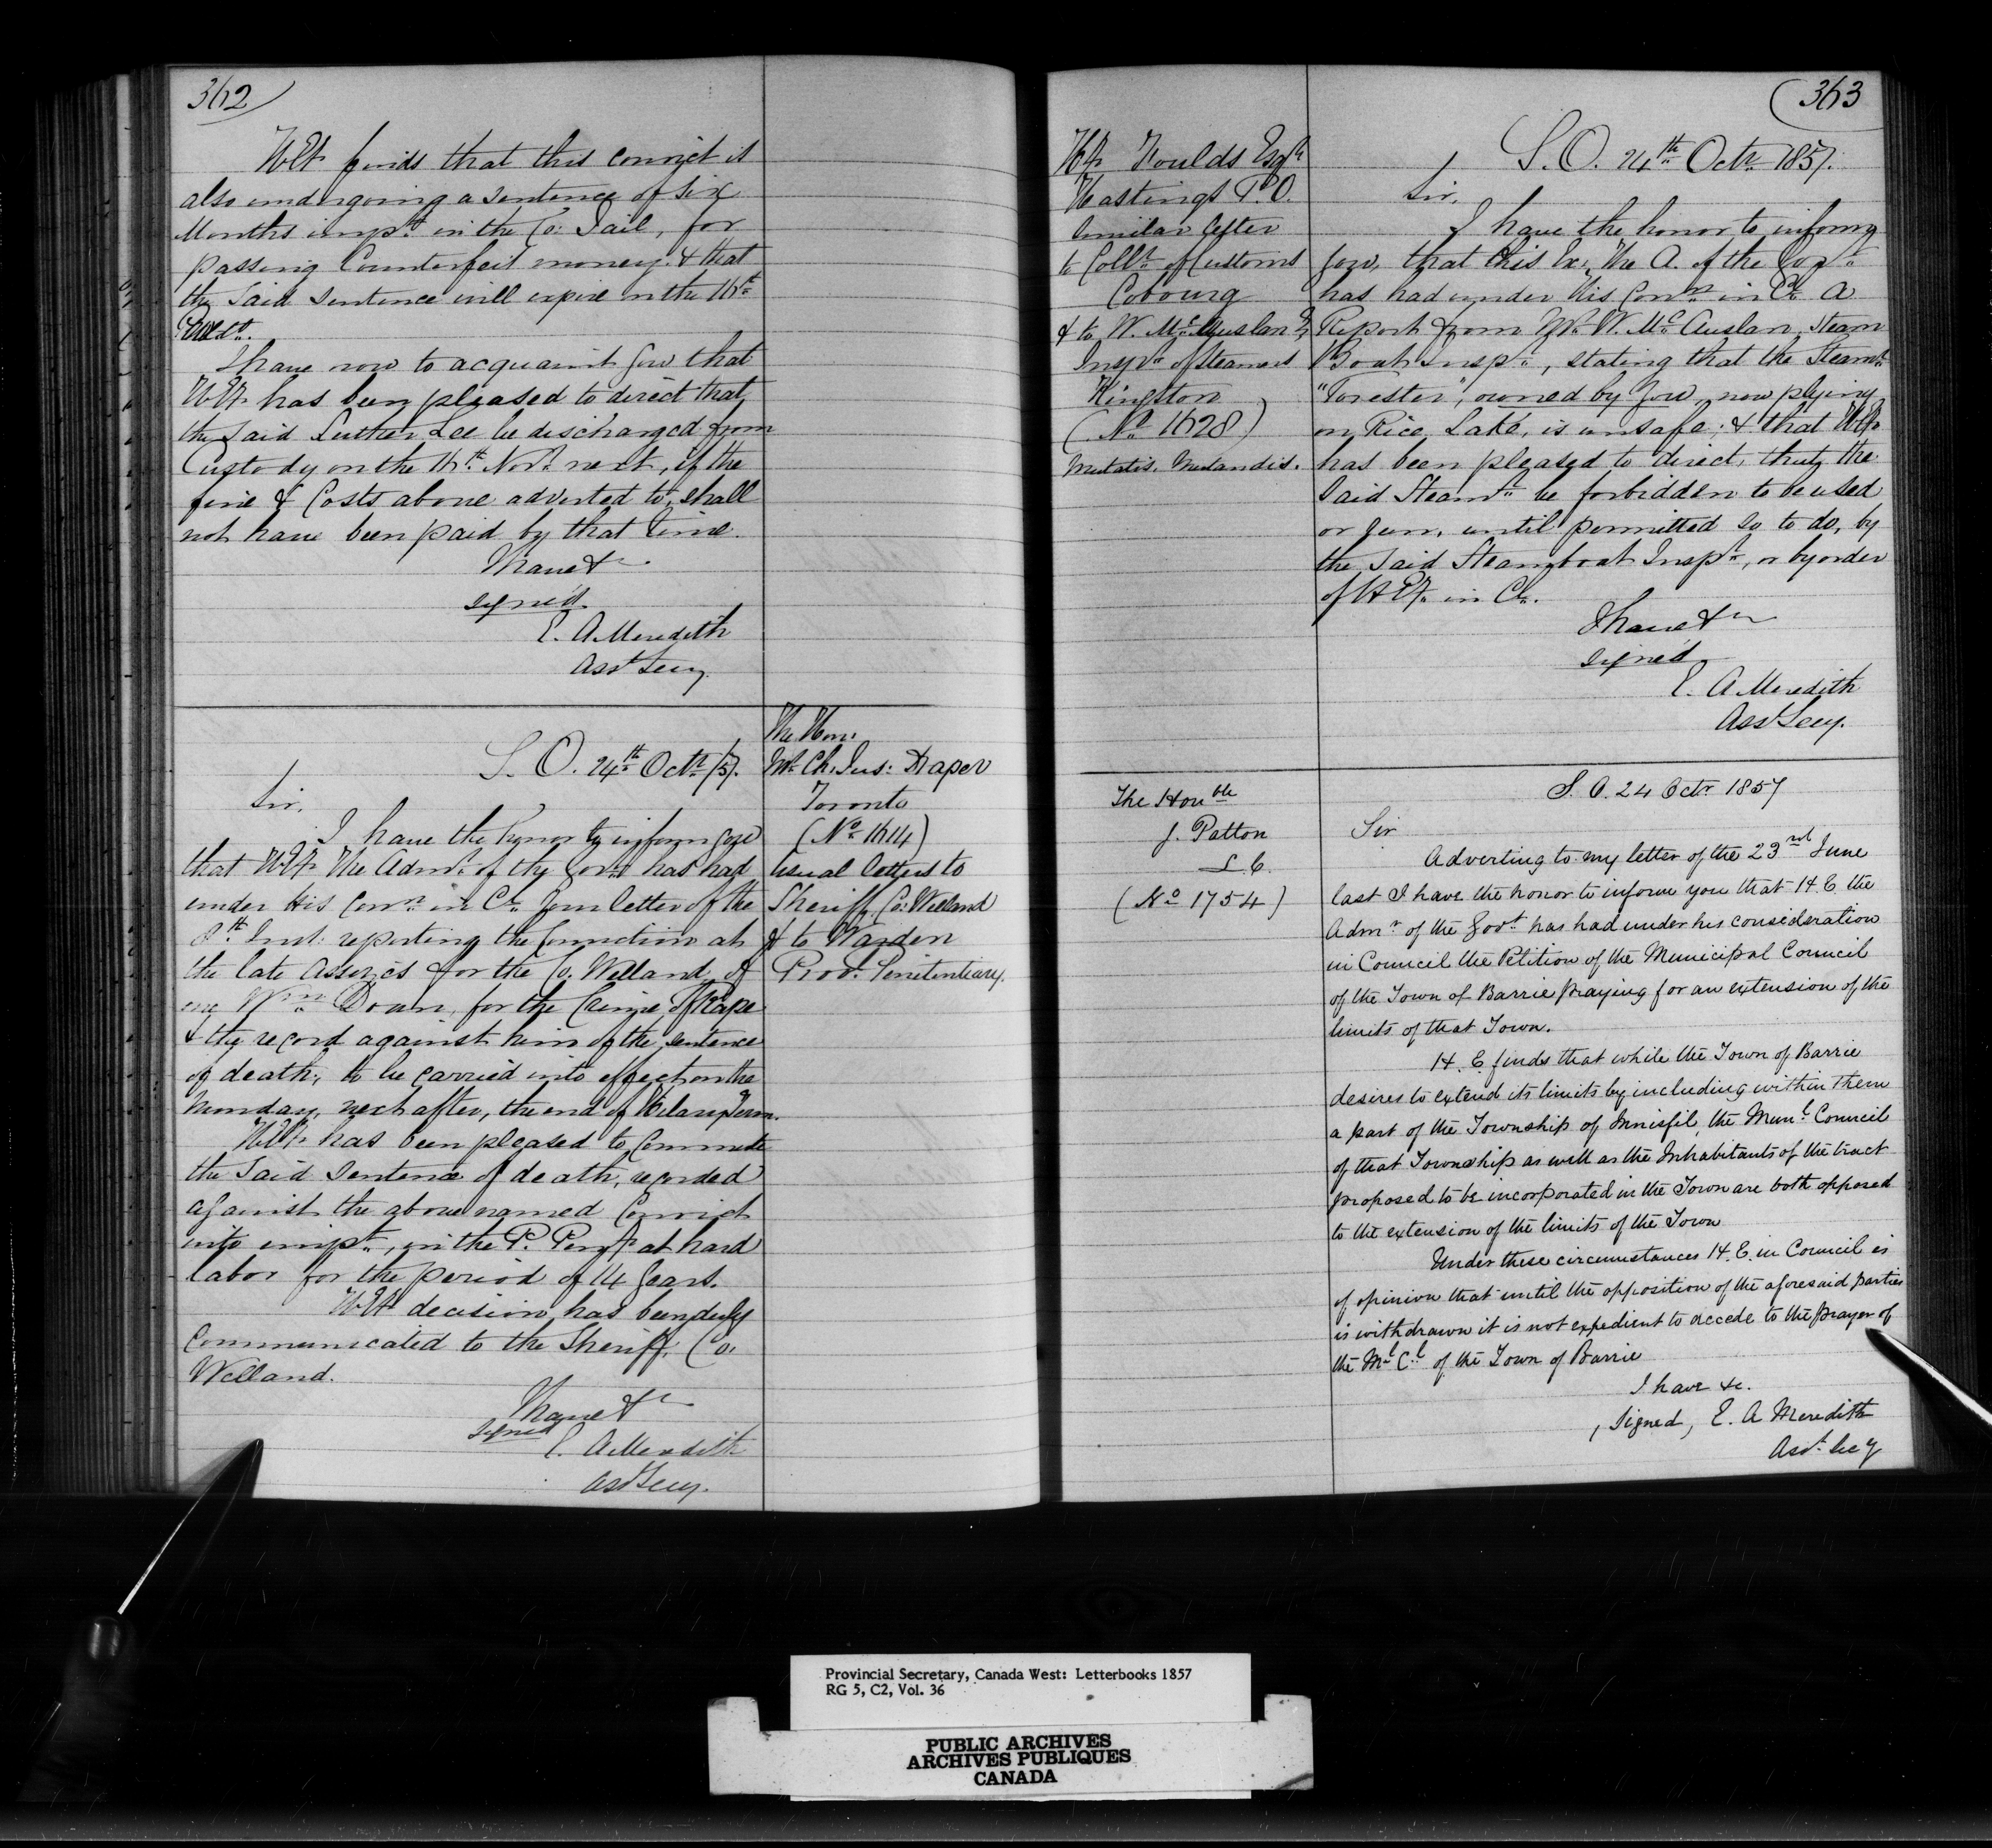 362
H.E. finds that this convict is
also undergoing a sentence of six
Months impt. in the Co: Jail, for
passing Counterfeit money & that
the said sentence will expire on the 16th
Proxo.
I have now to acquaint you that
H.E. has been pleased to direct that
the said Luther Lee be discharged from
Custody on the 16th Novr. next, if the
fine & Costs above adverted to, shall
not have been paid by that time.
I have &c
signed
E. A. Meredith
Asst Secy.
S. O. 24th Octr /57.
Sir,
I have the honor to inform you
that H.E. The Admr. of the Govt. has had
under His Conn. in Cl. your letter of the
8th Inst: reporting the conviction at
the late Assizes for the Co. Welland, of
one Wm. Doan, for the Crime of Rape
& the record against him of the sentence
of death, to be carried into effect on the
Monday, next after, the end of Hilary Term.
H.E. has been pleased to Commute
the said Sentence of death, recorded
against the above named Convict
into impt., in the P. Peny. at hard
labor for the period of 14 years.
H.E. decision has been duly
Communicated to the Sheriff, Co.
Welland.
I have &c
signed
E. A. Meredith
Asst Secy.
The Hon:
Mr. Ch: Jus: Draper
Toronto
(No. 1614)
usual letters to
Sheriff, Co: Welland
& to Warden
Provl. Penitentiary.
363
Foulds Esqr.
Hastings P.O.
Similar letter
to Collr. of Customs
Cobourg
& to W. McAuslan
Inspr. of Steamers
Kingston
(No. 1628)
Mutatis. Mutandis.
S. O. 24th Octr. 1857.
Sir,
I have the honor to inform
you, that His Ex: The A. of the Govt.
has had under His Conn. in Cl. a
Report from Mr. W. McAuslan, Steam
Boat Inspr., stating that the Steamr.
"Forester", owned by you, now plying
on Rice Lake, is unsafe; & that H.E.
has been pleased to direct, that the
said Steamr. be forbidden to be used
or run, until permitted so to do, by
the said Steamboat Inspr., or by order
of H.E. in Cl.
I have &c
signed
E. A. Meredith
Asst Secy.
The Honble
J. Patton
L.C.
(No 1754)
S. O. 24 Octr 1857
Sir
Adverting to my letter of the 23rd June
last I have the honor to inform you that H. E the
Admr of the Govt has had under his consideration
in Council the Petition of the Municipal Council
of the Town of Barrie praying for an extension of the
limits of that Town.
H. E. finds that while the Town of Barrie
desires to extend its limits by including within them
a part of the Township of Innisfil, the Munl. Council
of that Township as well as the Inhabitants of the tract
proposed to be incorporated in the Town are both opposed
to the extension of the limits of the Town
Under these circumstances H. E. in Council is
of opinion that until the opposition of the aforesaid parties
is withdrawn it is not expedient to accede to the prayer of
the Ml Cl of the Town of Barrie
I have &c.
, signed, E. A Meredith
Asst. Secy
Provincial Secretary, Canada West: Letterbooks 1857
RG 5, C2, Vol. 36
PUBLIC ARCHIVES
ARCHIVES PUBLIQUES
CANADA